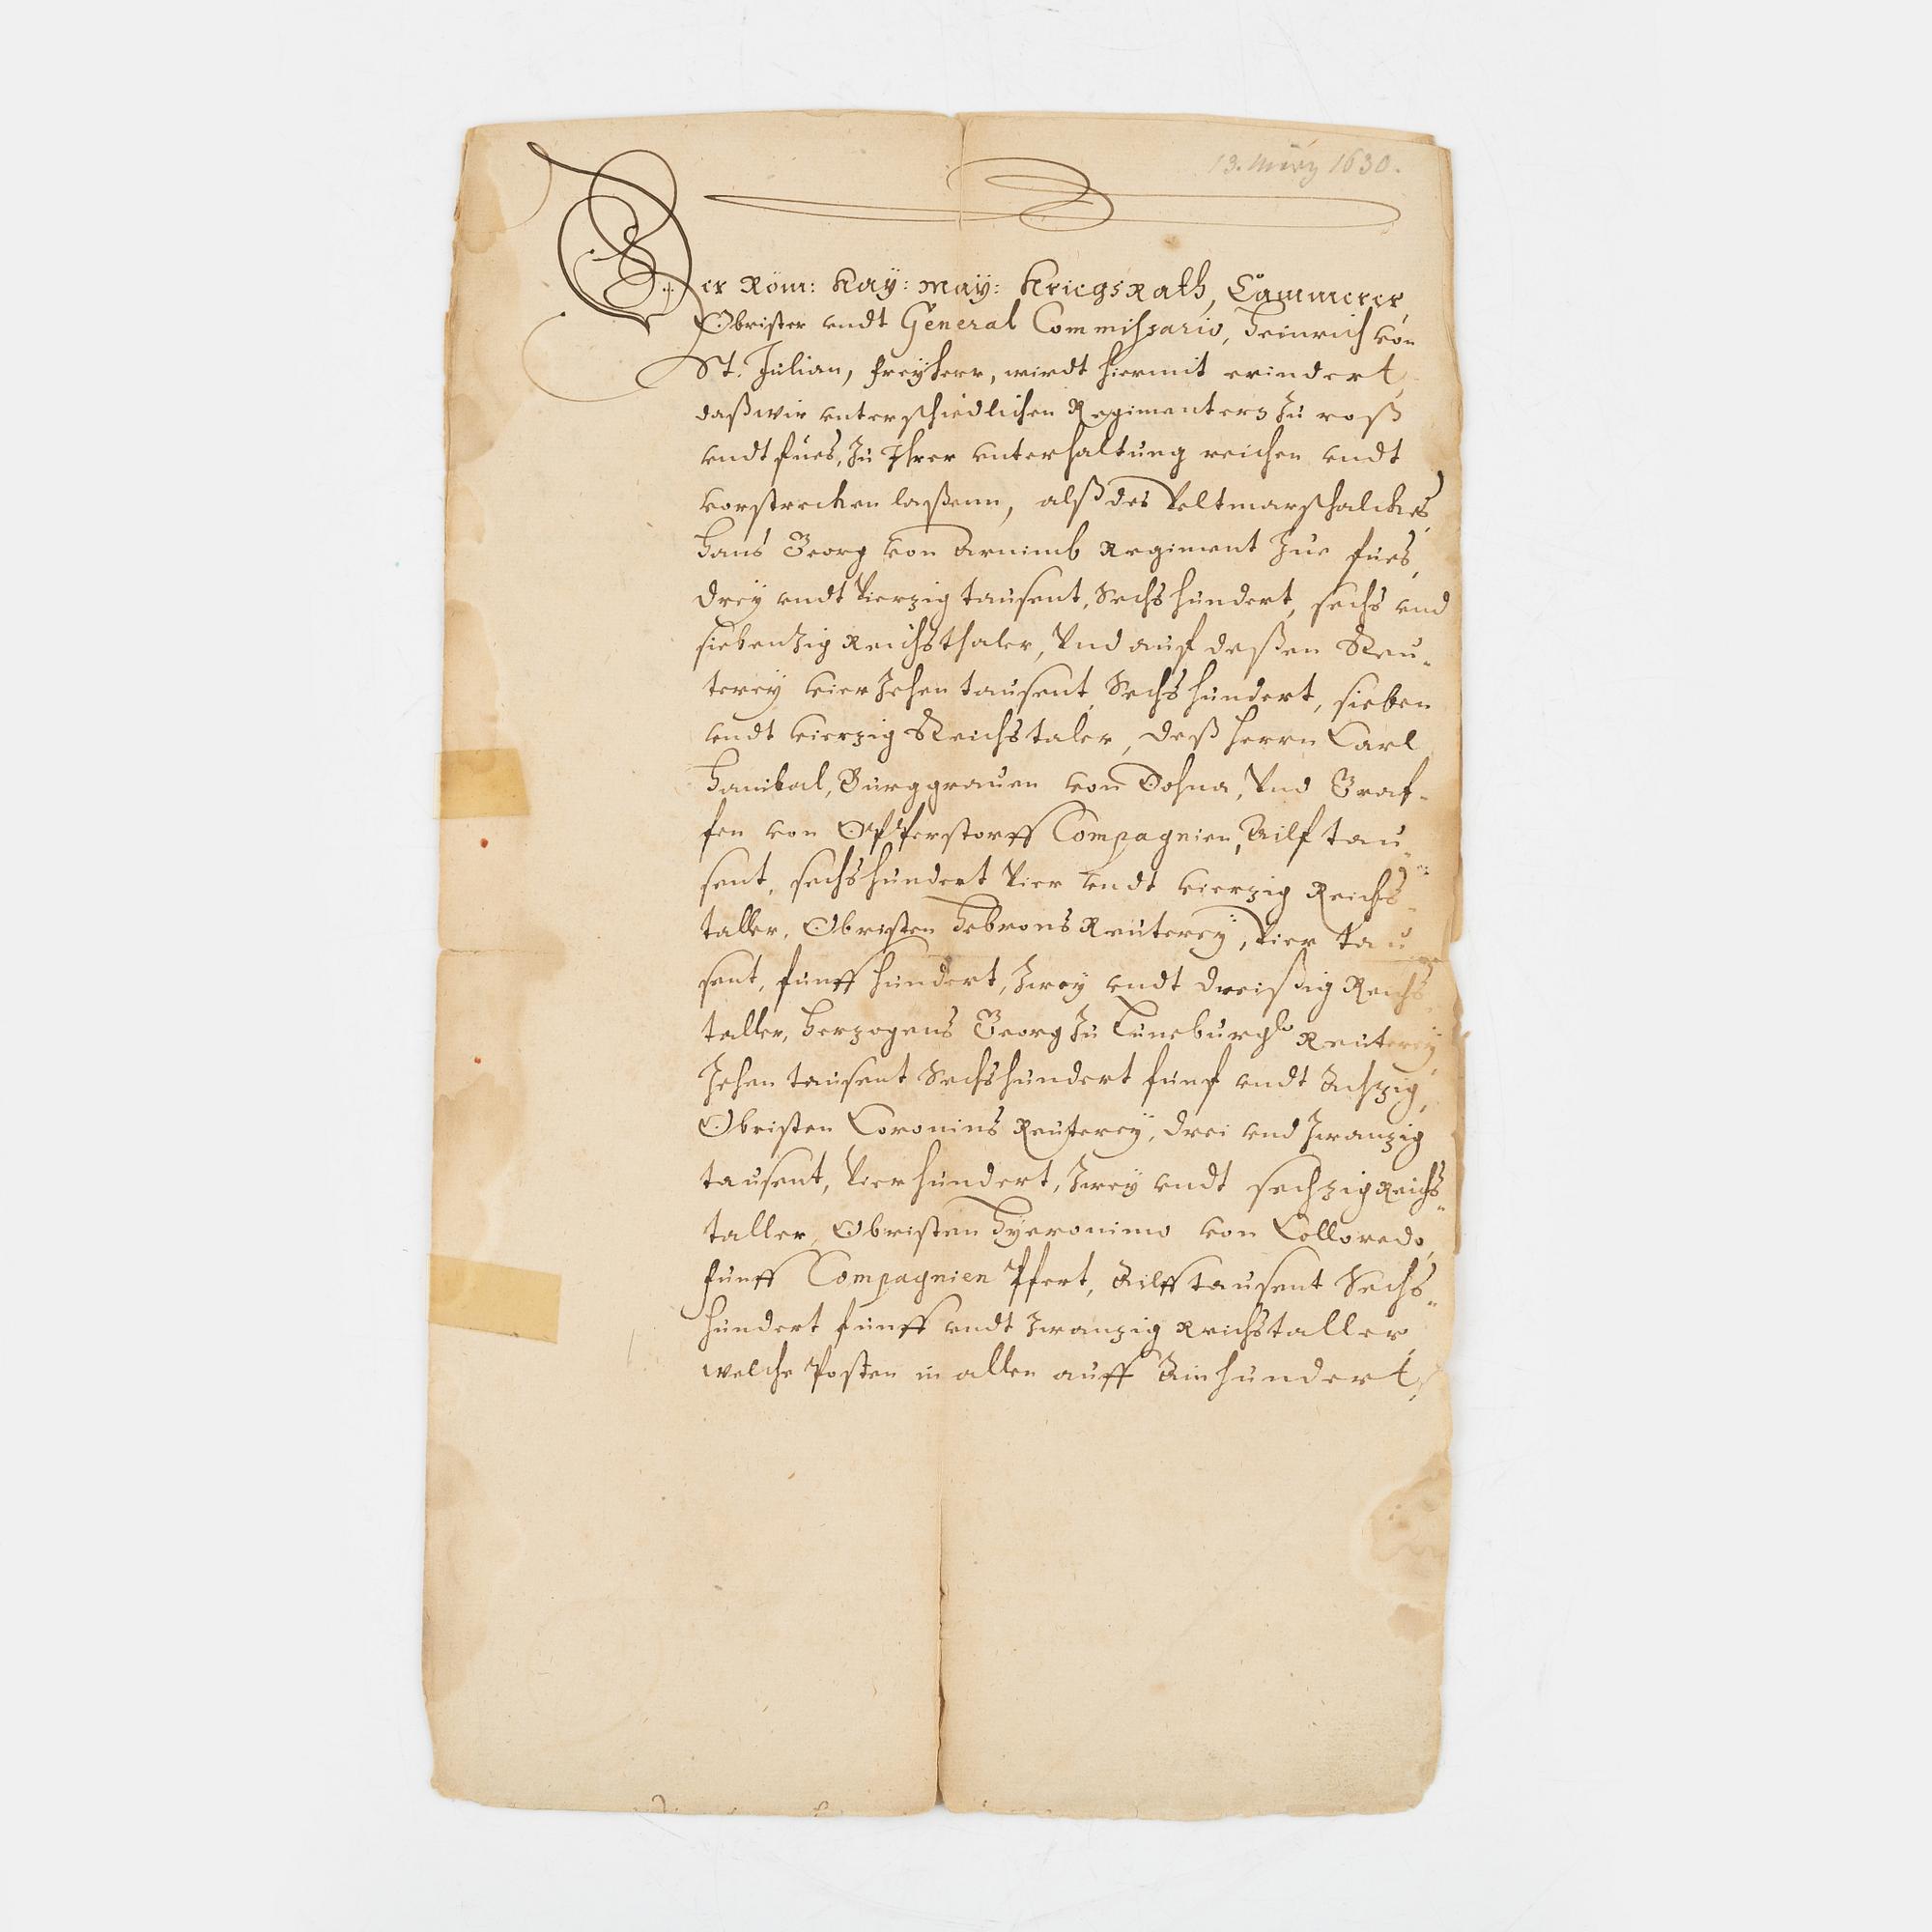 13. März 1630.
Der Röm: Kaÿ: Maÿ: KriegsRath, Cammerer,
Obrister vndt General Commissario, Heinrich von
St. Julian, freÿherr, wirdt hiermit erindert,
daß wir vnterschiedlichen Regimentern zu roß
vndt fues, zu Ihrer vnterhaltung reichen vndt
vorstrecken laßenn, alß des Veltmarschalckes,
Hans Georg von Arnimb Regiment zue fues,
dreÿ vndt Vierzig tausent, Sechs hundert, sechs vnd
siebenzig Reichsthaler, Vnd auf deßen Reu-
tereÿ vier zehen tausent, Sechs hundert, sieben
vndt vierzig Reichstaler, deß Herrn Carl
Hanibal, Burggrauen von Dohna, Vnd Graf-
fen von Opperstorff Compagnien, Ailf tau-
sent, sechs hundert Vier vndt vierzig Reichs-
taller, Obristen Hebrons Reüterey, Vier tau-
sent, funff hundert, zweÿ vndt dreißig Reichs
taller, Herzogens Georg zu Lüneburg Reüterey,
zehen tausent Sechshundert funf vndt Achzig,
Obristen Coronins Reüterey, drei vnd zwanzig
tausent, Vier hundert, zweÿ vndt sechzig Reichs-
taller, Obristen Hyeronimo von Colloredo,
funff Compagnien Pfert, Ailff tausent Sechs-
hundert funff vndt zwanzig Reichstaller,
welche Posten in allen auff Ain hundert,